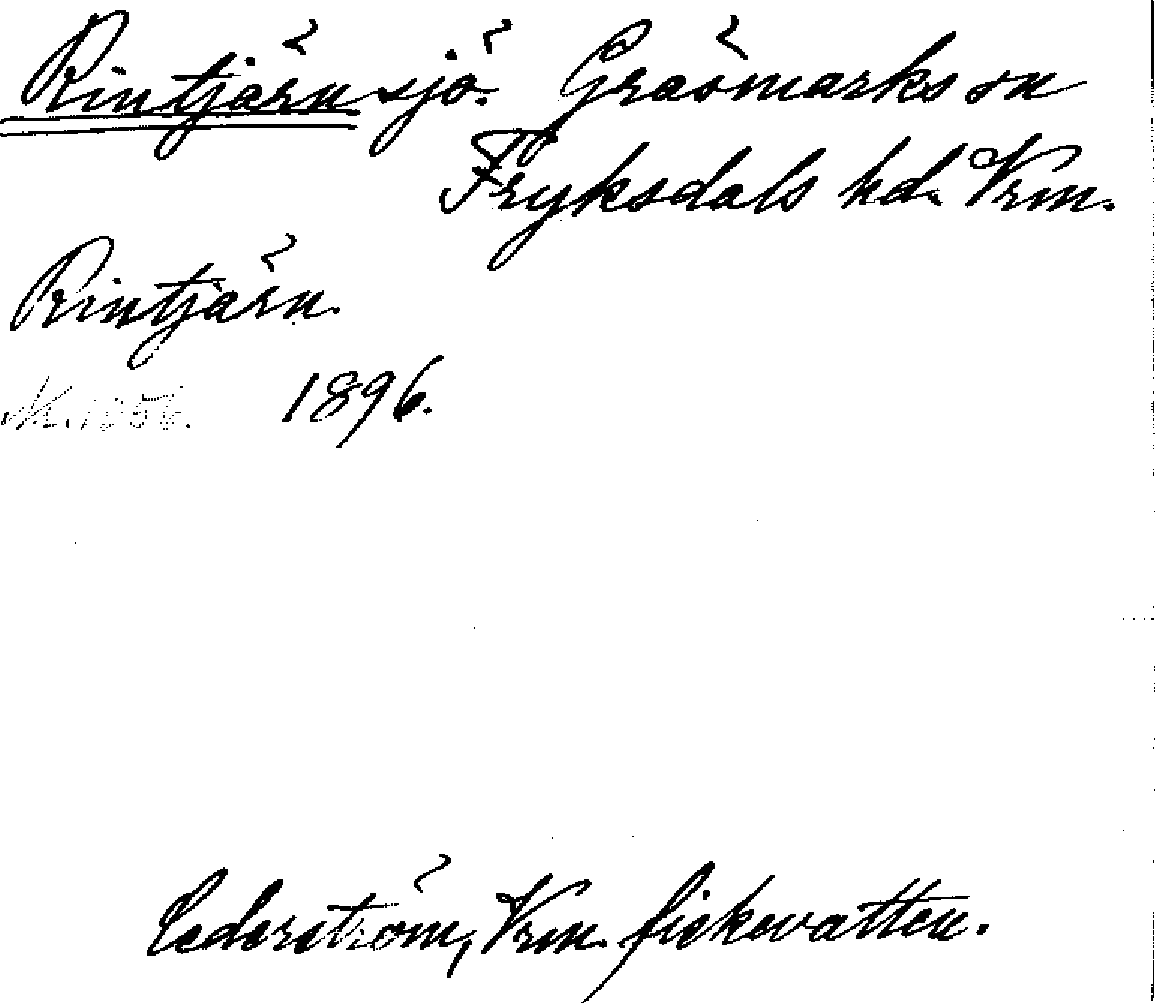 Rintjärn sjö. Gräsmarks sn
Fryksdals hd. Vrm.
Rintjärn.
1896.
Cederström, Vrm. fiskevatten.